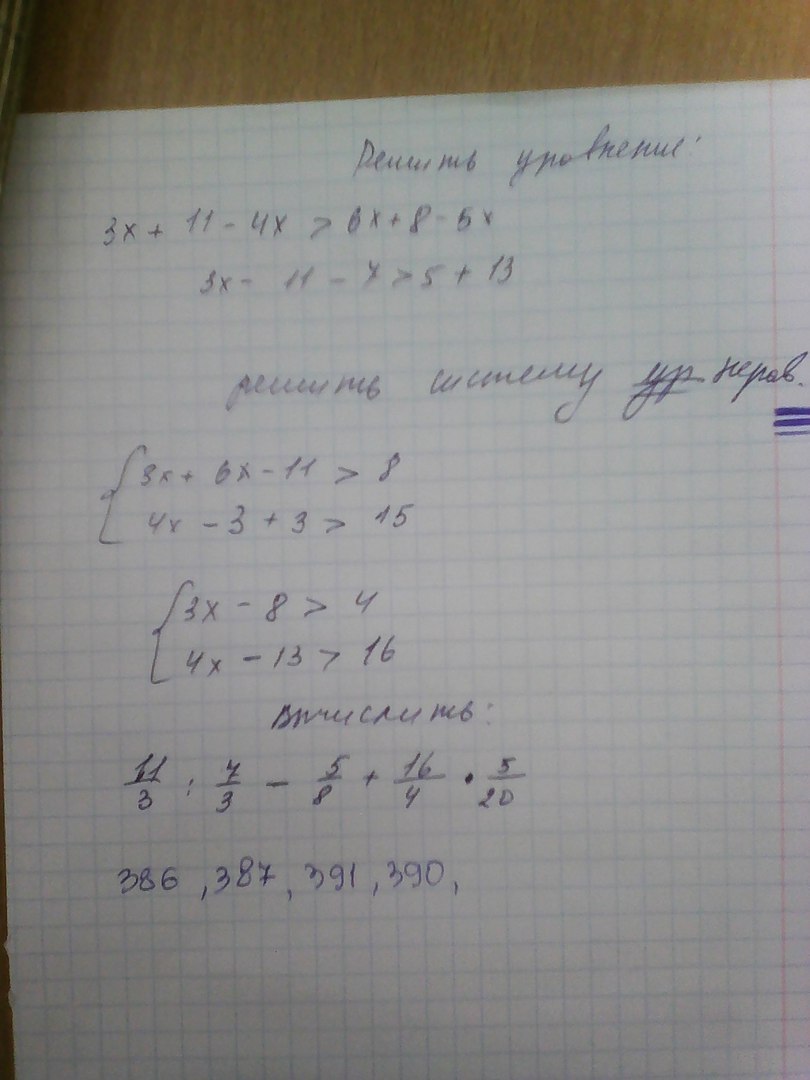 Решить уровнение:
3x + 11 - 4x > 6x + 8 - 5x
3x - 11 - 7 > 5 + 13
решить систему ур нерав.
{3x + 6x - 11 > 8
4x - 3 + 3 > 15
{3x - 8 > 4
4x - 13 > 16
Вычислить:
11/3 : 7/3 - 5/8 + 16/4 · 5/20
386, 387, 391, 390,